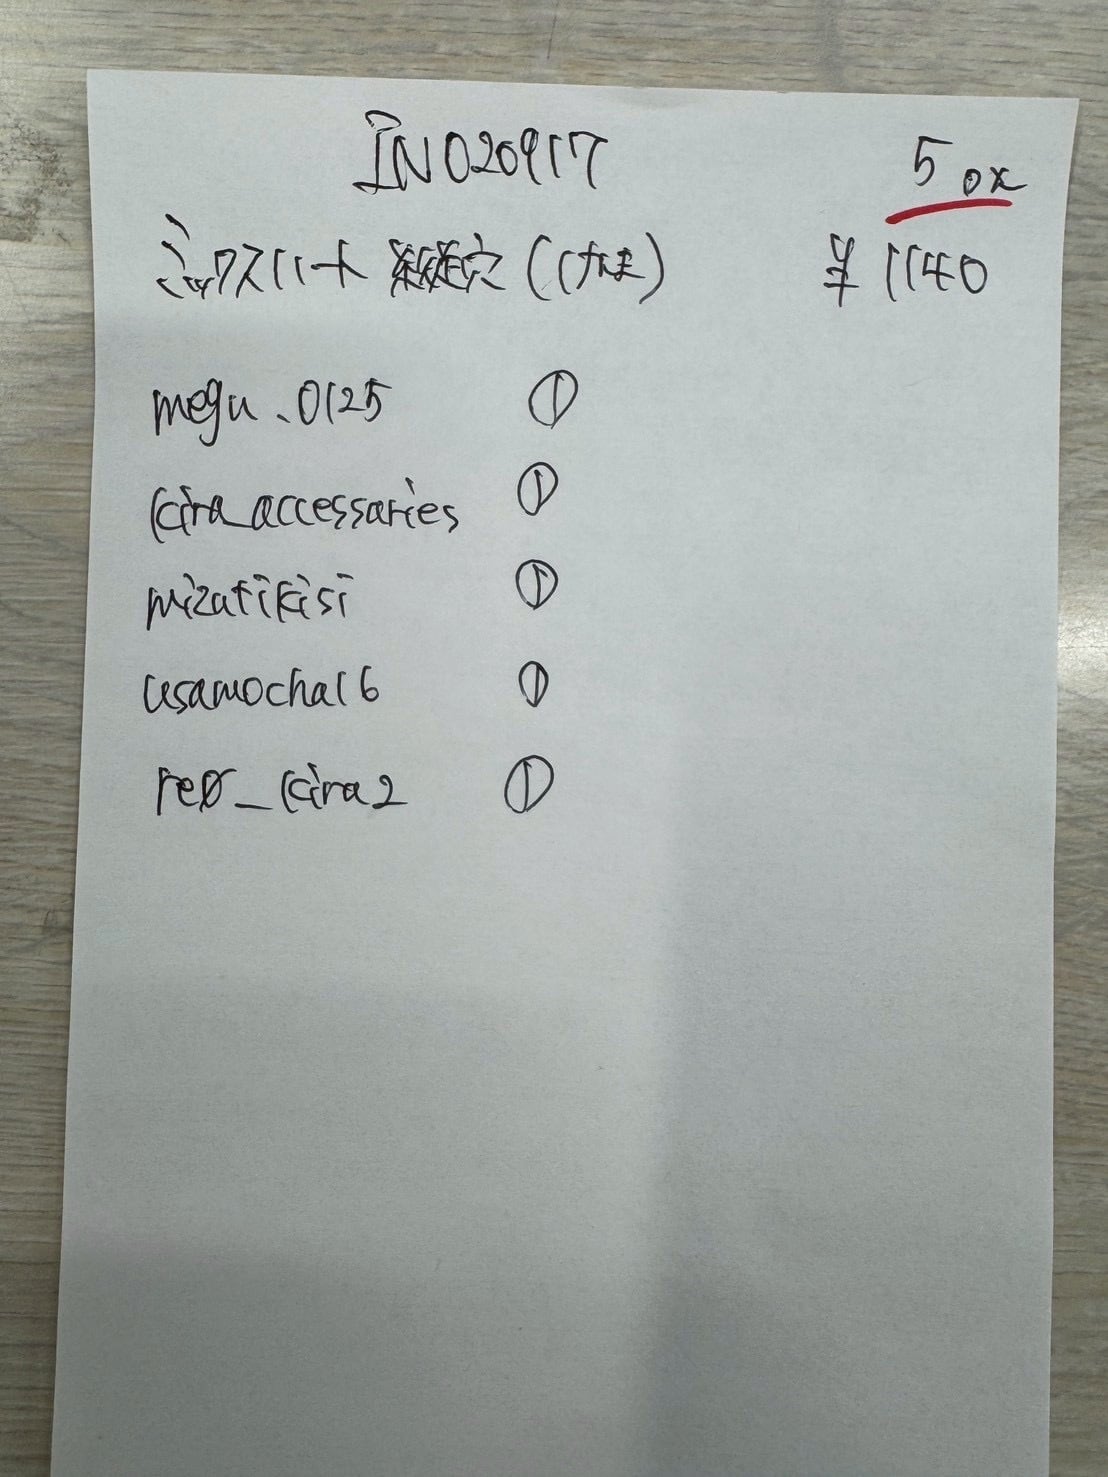 IN020917
5 ox
ミックスハート 縦穴 (1k)
¥1140
megu.0125 ①
kira_accessaries ①
mizutikisi ①
usamocha16 ①
re0_kira2 ①